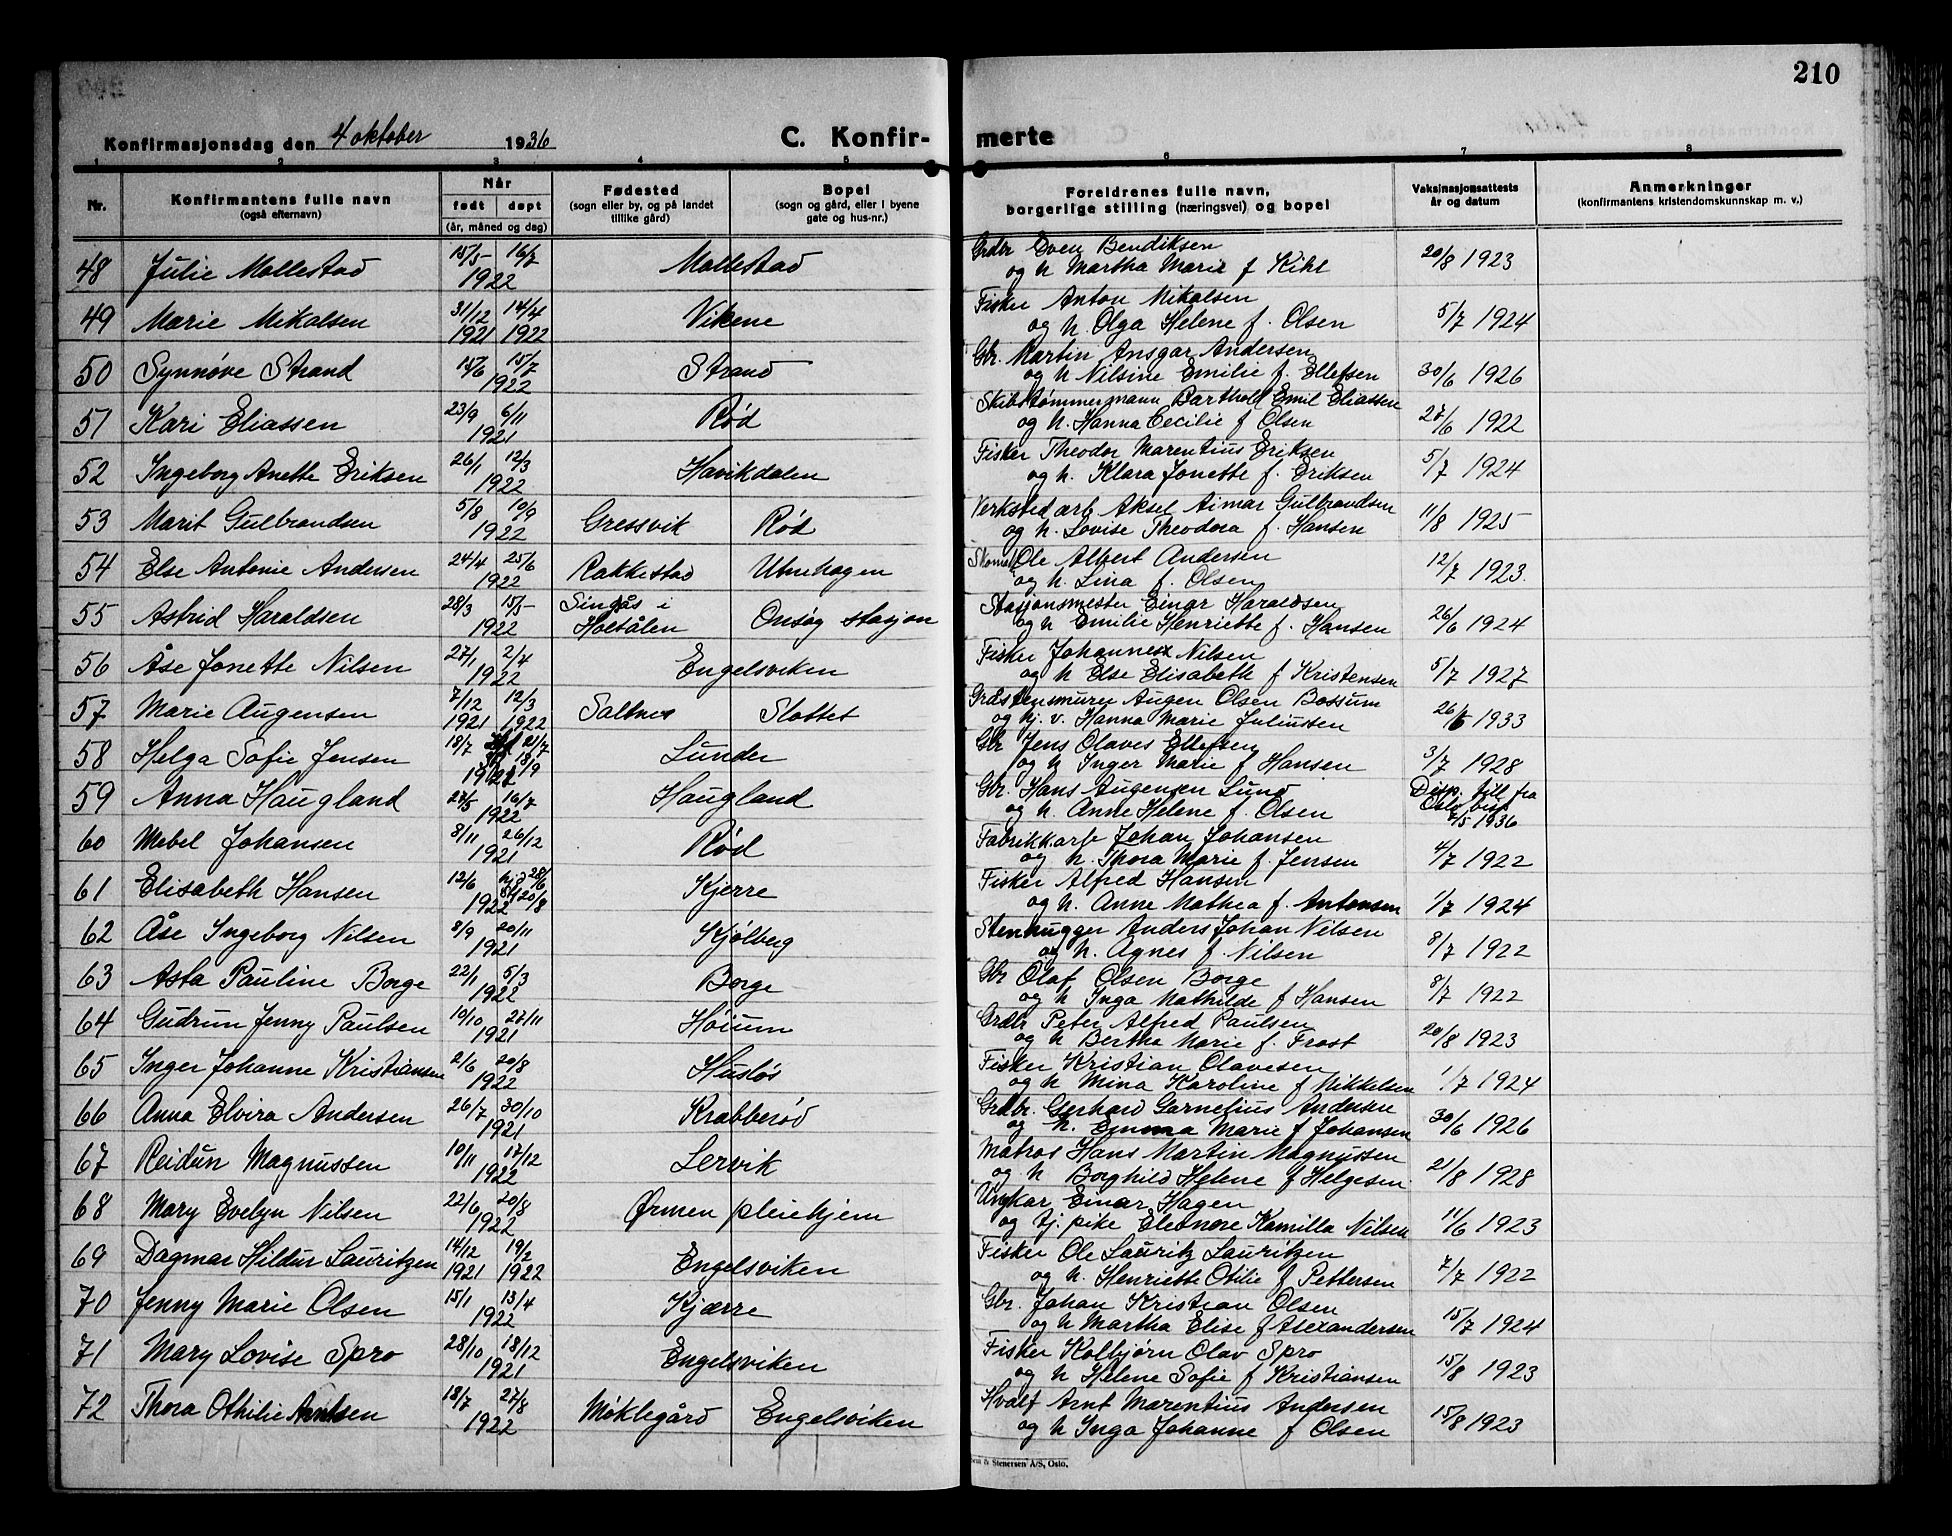 210
Konfirmasjonsdag den 4 oktober 1936 C. Konfirmerte
1 2 3 4 5 6 7 8
Nr. Konfirmantens fulle navn (også efternavn) Når født døpt (år, måned og dag) Fødested (sogn eller by, og på landet tillike gård) Bopel (sogn og gård, eller i byene gate og hus-nr.) Foreldrenes fulle navn, borgerlige stilling (næringsvei) og bopel Vaksinasjonsattests år og datum Anmerkninger (konfirmantens kristendomskunnskap m. v.)
48 Julie Mollestad 15/5 16/7 1922 Mollestad Grdbr Even Bendiksen
og h Martha Marie f Kihl 20/8 1923
49 Marie Mikalsen 31/12 1921 14/4 1922 Vikene Fisker Anton Mikalsen
og h. Olga Helene f. Olsen 5/7 1924
50 Synnøve Strand 15/6 15/7 1922 Strand Gbr. Martin Ansgar Andersen
og h Nilsine Emilie f. Ellefsen 30/6 1926
51 Kari Eliassen 23/9 6/11 1921 Rød Skibstømmermann Barthold Emil Eliassen
og h. Hanna Cecilie f Olsen 27/6 1922
52 Ingeborg Anette Eriksen 26/1 12/3 1922 Havikdalen Fisker Theodor Marentius Eriksen
og h. Klara Jonette f. Eriksen 5/7 1924
53 Marit Gulbrandsen 5/8 10/9 1922 Gressvik Rød Verksted arb Aksel Aimar Gulbrandsen
og h. Lovise Theodora f. Hansen 11/8 1925
54 Else Antonie Andersen 24/4 25/6 1922 Rakkestad Utnehagen Skom. Ole Albert Andersen
og h. Lina f. Olsen 12/7 1923.
55 Astrid Haraldsen 28/3 15/5 1922 Singsås i Holtålen Onsøy stasjon Stasjonsmester Einar Haraldsen
og h Emilie Henriette f. Hansen 26/6 1924
56 Åse Jonette Nilsen 27/1 2/4 1922 Engelsviken Fisker Johannes Nilsen
og h Else Elisabeth f Kristensen 5/7 1927
57 Marie Augensen 7/12 1921 12/3 1922 Saltnes Slottet Gråstensmurer Augen Olsen Bossum
og hj. v. Hanna Marie Juliussen 26/6 1933
58 Helga Sofie Jensen 18/7 21/7 1922 Lunder Gbr Jens Olaves Ellefsen
og h Inger Marie f Hansen 3/7 1928
59 Anna Haugland 27/5 16/7 1922 Haugland Gbr. Hans Augensen Lund
og h. Anne Helene f. Olsen Disp. till fra Oslo bisp 7/5 1936
60 Mabel Johansen 8/11 26/12 1921 Rød Fabrikkarb Johan Johansen
og h. Thora Marie f. Jensen 4/7 1922
61 Elisabeth Hansen 12/6 hjd 28/6 20/8 1922 Kjerre Fisker Alfred Hansen
og h. Anne Mathea f. Antonsen 1/7 1924
62 Åse Ingeborg Nilsen 8/9 20/11 1921 Kjølberg Stenhugger Anders Johan Nilsen
og h. Agnes f. Nilsen 8/7 1922
63 Asta Pauline Borge 22/1 5/3 1922 Borge Gbr Olaf Olsen Borge
og h Inga Mathilde f Hansen 8/7 1922
64 Gudrun Jenny Paulsen 10/10 27/11 1921 Høium Grdbr Peter Alfred Paulsen
og h Bertha Marie f. Frost 20/8 1923
65 Inger Johanne Kristiansen 2/6 20/8 1922 Husløs Fisker Kristian Olavesen
og h Mina Karoline f Mikkelsen 1/7 1924
66 Anna Elvira Andersen 26/7 30/10 1921 Krabberød Grdbr. Gerhard Garnelius Andersen
og h. Emma Marie f Johansen 30/6 1926
67 Reidun Magnussen 10/11 17/12 1922 Lervik Matros Hans Martin Magnussen
og h Borghild Helene f Helgesen 21/8 1928
68 Mary Evelyn Nilsen 22/6 20/8 1922 Ørmen pleiehjem Ungkar Einar Hagen
og tj. pike Eleonore Kamilla Nilsen 11/6 1923
69 Dagmar Hildur Lauritzen 14/12 1921 19/2 1922 Engelsviken Fisker Ole Lauritz Lauritzen
og h. Henriette Otilie f Pettersen 7/7 1922
70 Jenny Marie Olsen 15/1 13/4 1922 Kjærre Gbr. Johan Kristian Olsen
og h Martha Elise f Alexandersen 15/7 1924
71 Mary Lovise Spro 28/10 18/12 1921 Engelsviken Fisker Kolbjørn Olav Spro
og h Helene Sofie f Kristiansen 15/8 1923
72 Thora Othilie Arntsen 18/7 27/8 1922 Møklegård Engelsviken Hvalf Arnt Marentius Andersen
og h Inga Johanne f Olsen 15/8 1923
& Stenersen A/S, Oslo.